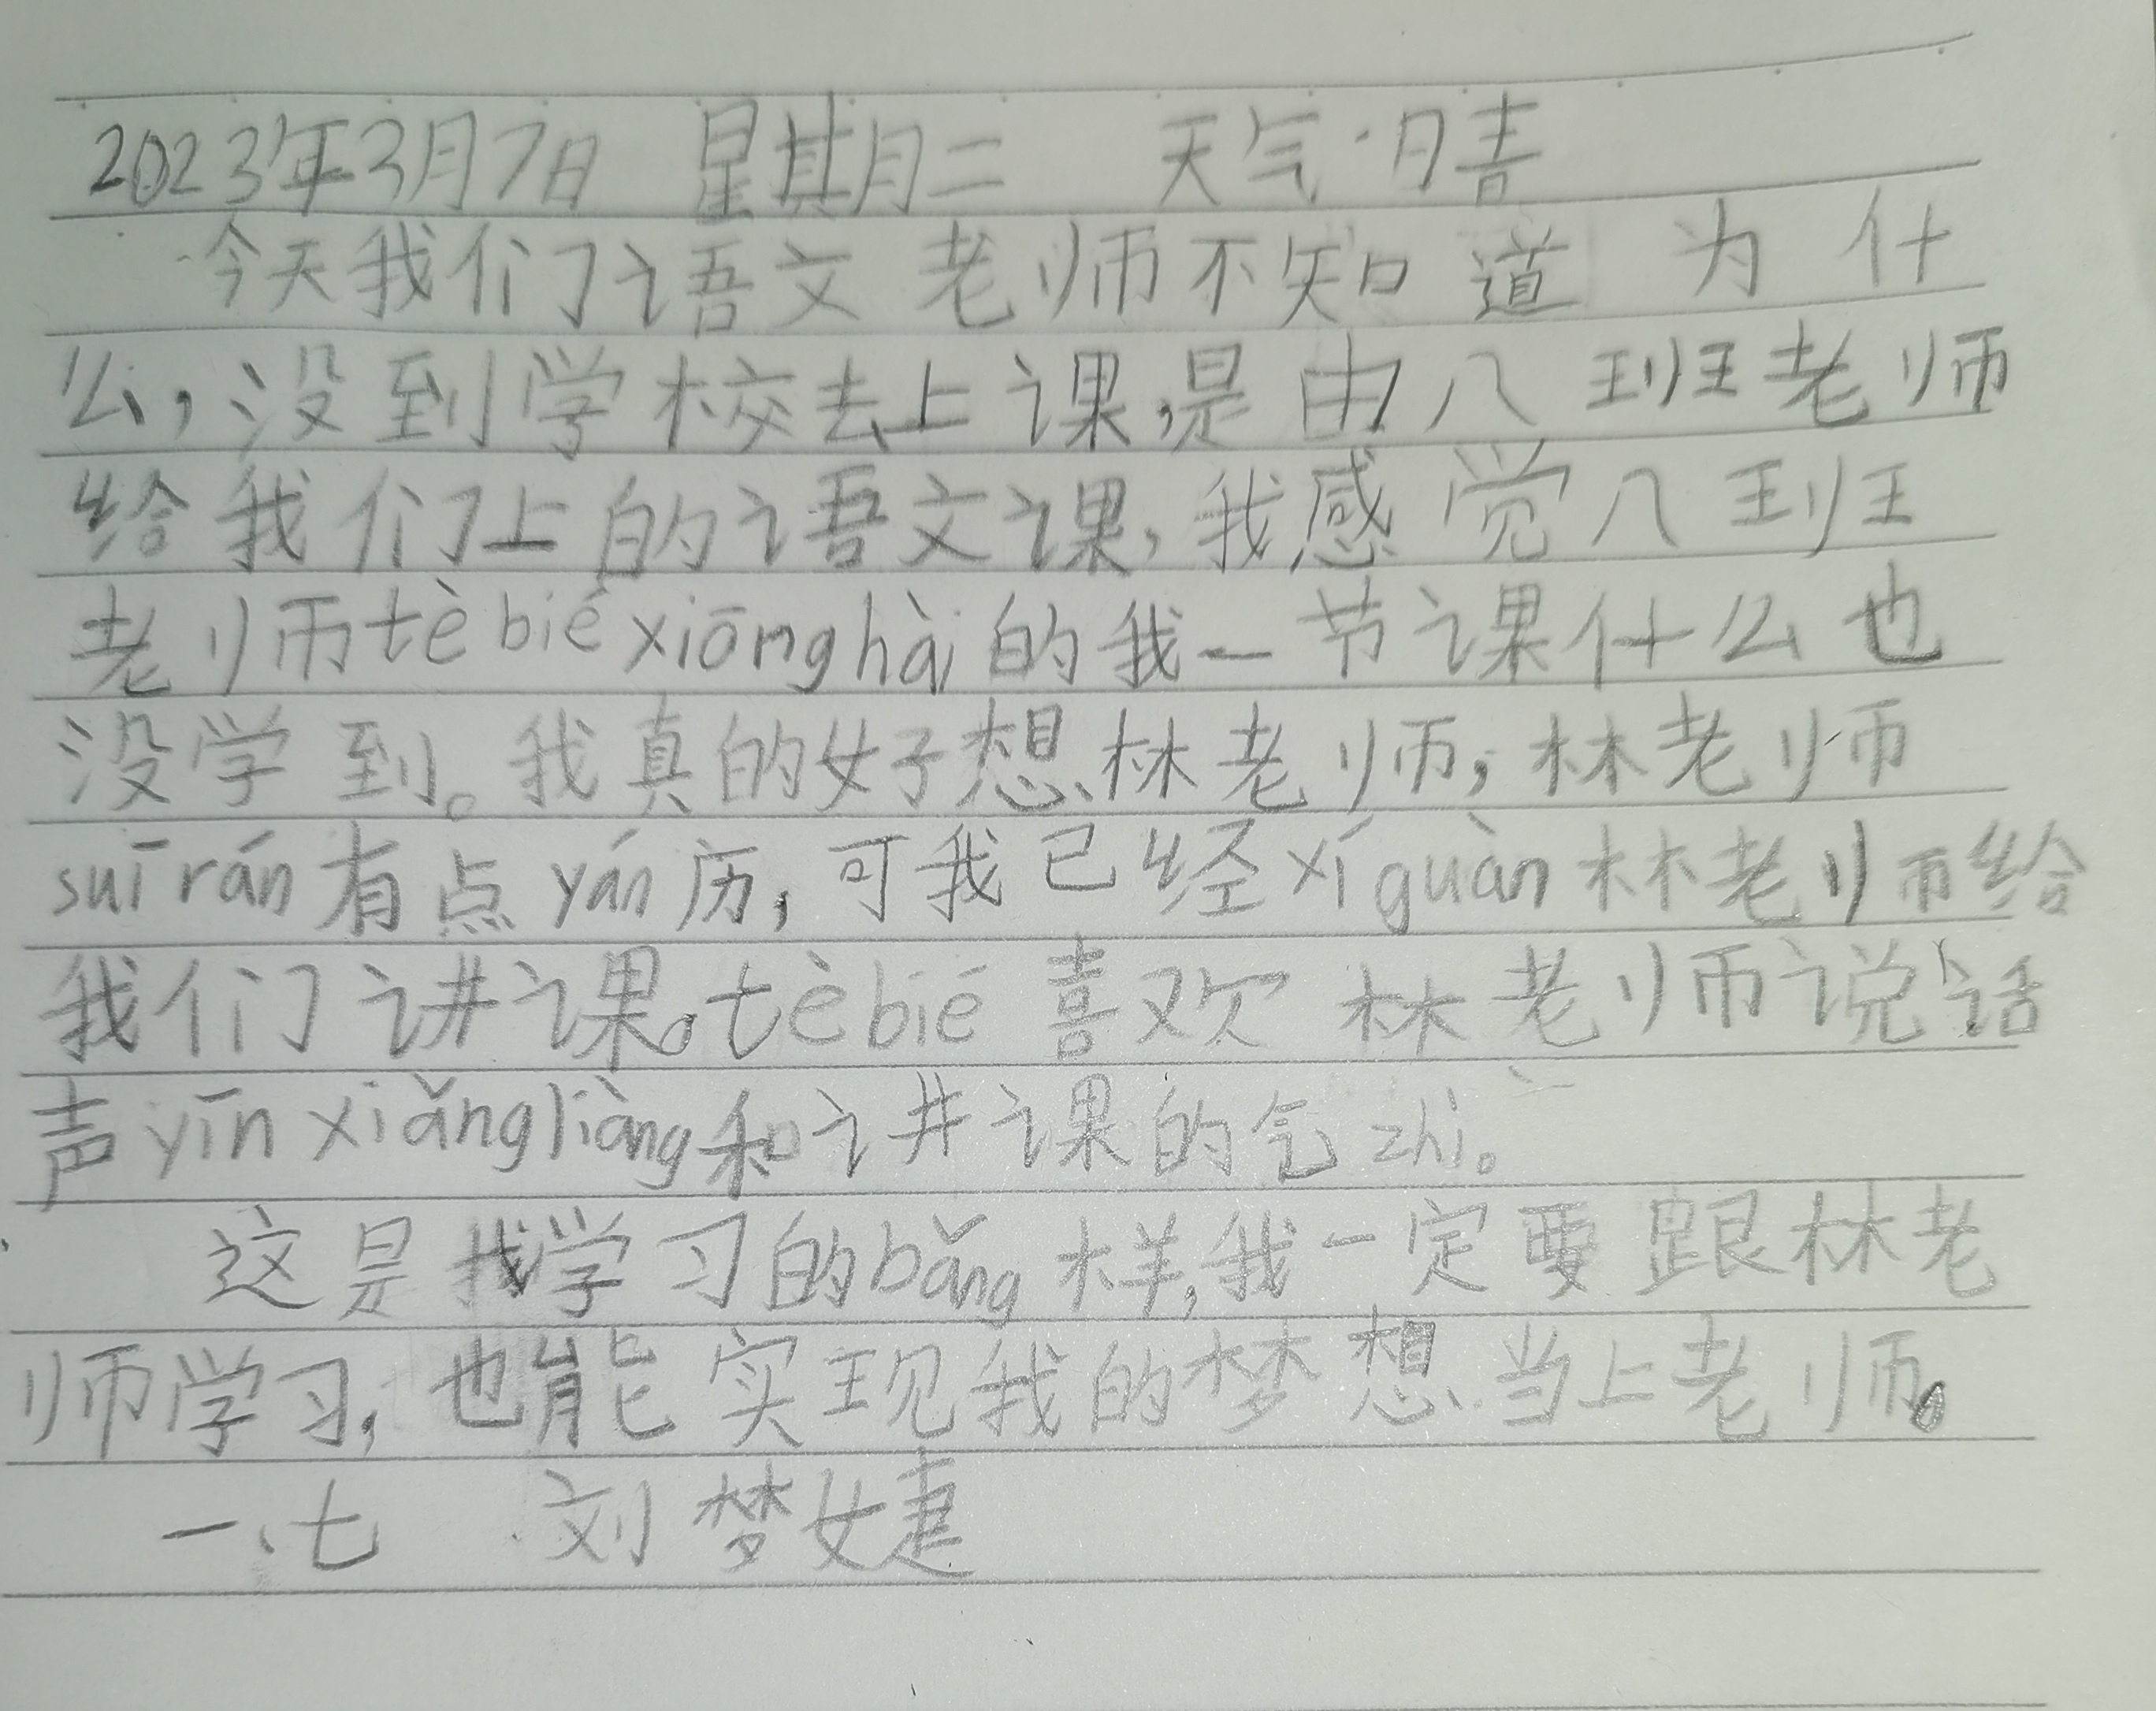 2023年3月7日 星期二 天气·晴
今天我们语文老师不知道为什
么,没到学校去上课,是由八班老师
给我们上的语文课,我感觉八班
老师tè bié xiōng hài的我一节课什么也
没学到。我真的好想林老师,林老师
suī rán有点yán历,可我已经xí guàn林老师给
我们讲课。tè bié喜欢林老师说话
声yīn xiǎng liàng和讲课的气zhì。
这是我学习的bǎng样,我一定要跟林老
师学习,也能实现我的梦想.当上老师。
一、七 刘梦婕